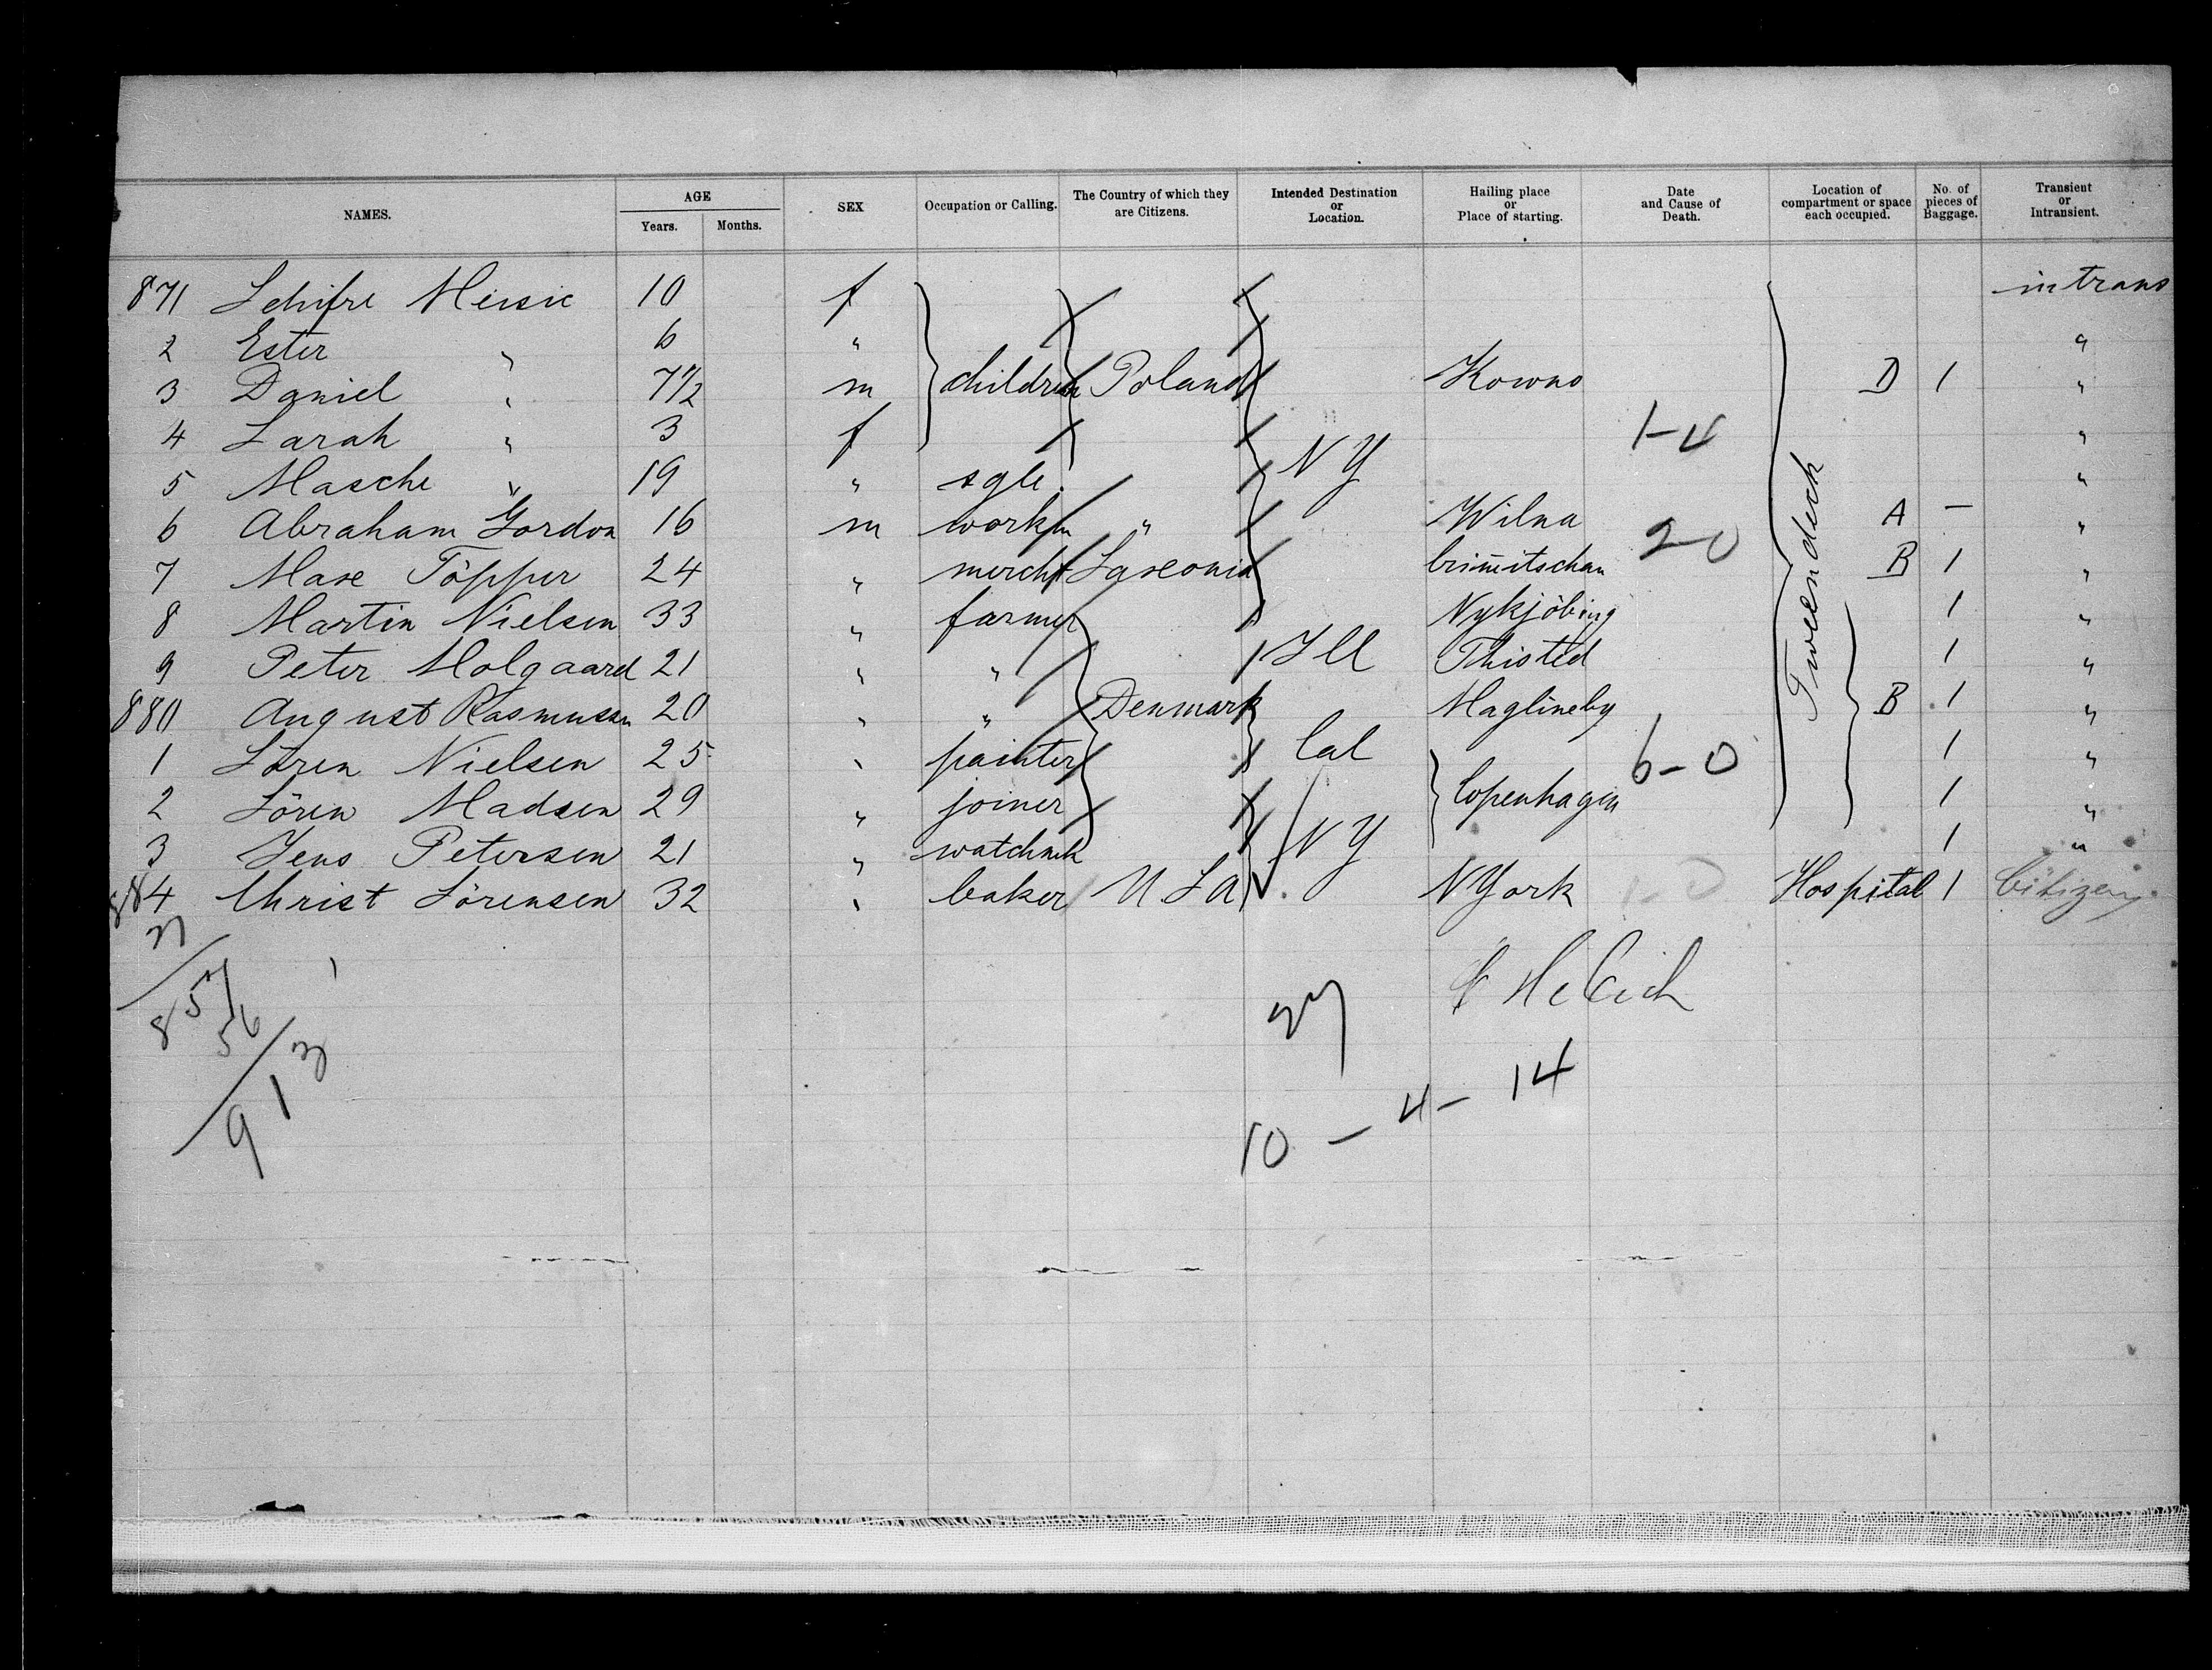 NAMES. AGE Years. Months. SEX Occupation or Calling. The Country of which they are Citizens. Intended Destination or Location. Hailing place or Place of starting. Date and Cause of Death. Location of compartment or space each occupied. No. of pieces of Baggage. Transient or Intransient.
871 Schifre Meisic 10 f intrans
2 Ester " 6 " "
3 Daniel " 7 1/2 m children Poland Kowno D 1 "
4 Sarah " 3 f 1-4 "
5 Masche " 19 " sgle. NY "
6 Abraham Gordon 16 m workm " Wilna 2-0 A — "
7 Max Töpper 24 " mercht Saxonia Crim̄itschau B 1 "
8 Martin Nielsen 33 " farmer Nykjöbing 1 "
9 Peter Molgaard 21 " " Ill Thisted Tweendeck 1 "
880 August Rasmussen 20 " " Denmark Maglineby B 1 "
1 Sören Nielsen 25 " painter Cal 6-0 1 "
2 Sören Madsen 29 " joiner Copenhagen 1 "
3 Jens Petersen 21 " watchmk NY 1 "
884 Christ Sörensen 32 " baker U S A NYork 1-0 Hospital 1 Citizen
27
857
56
913
27
10 - 4 - 14